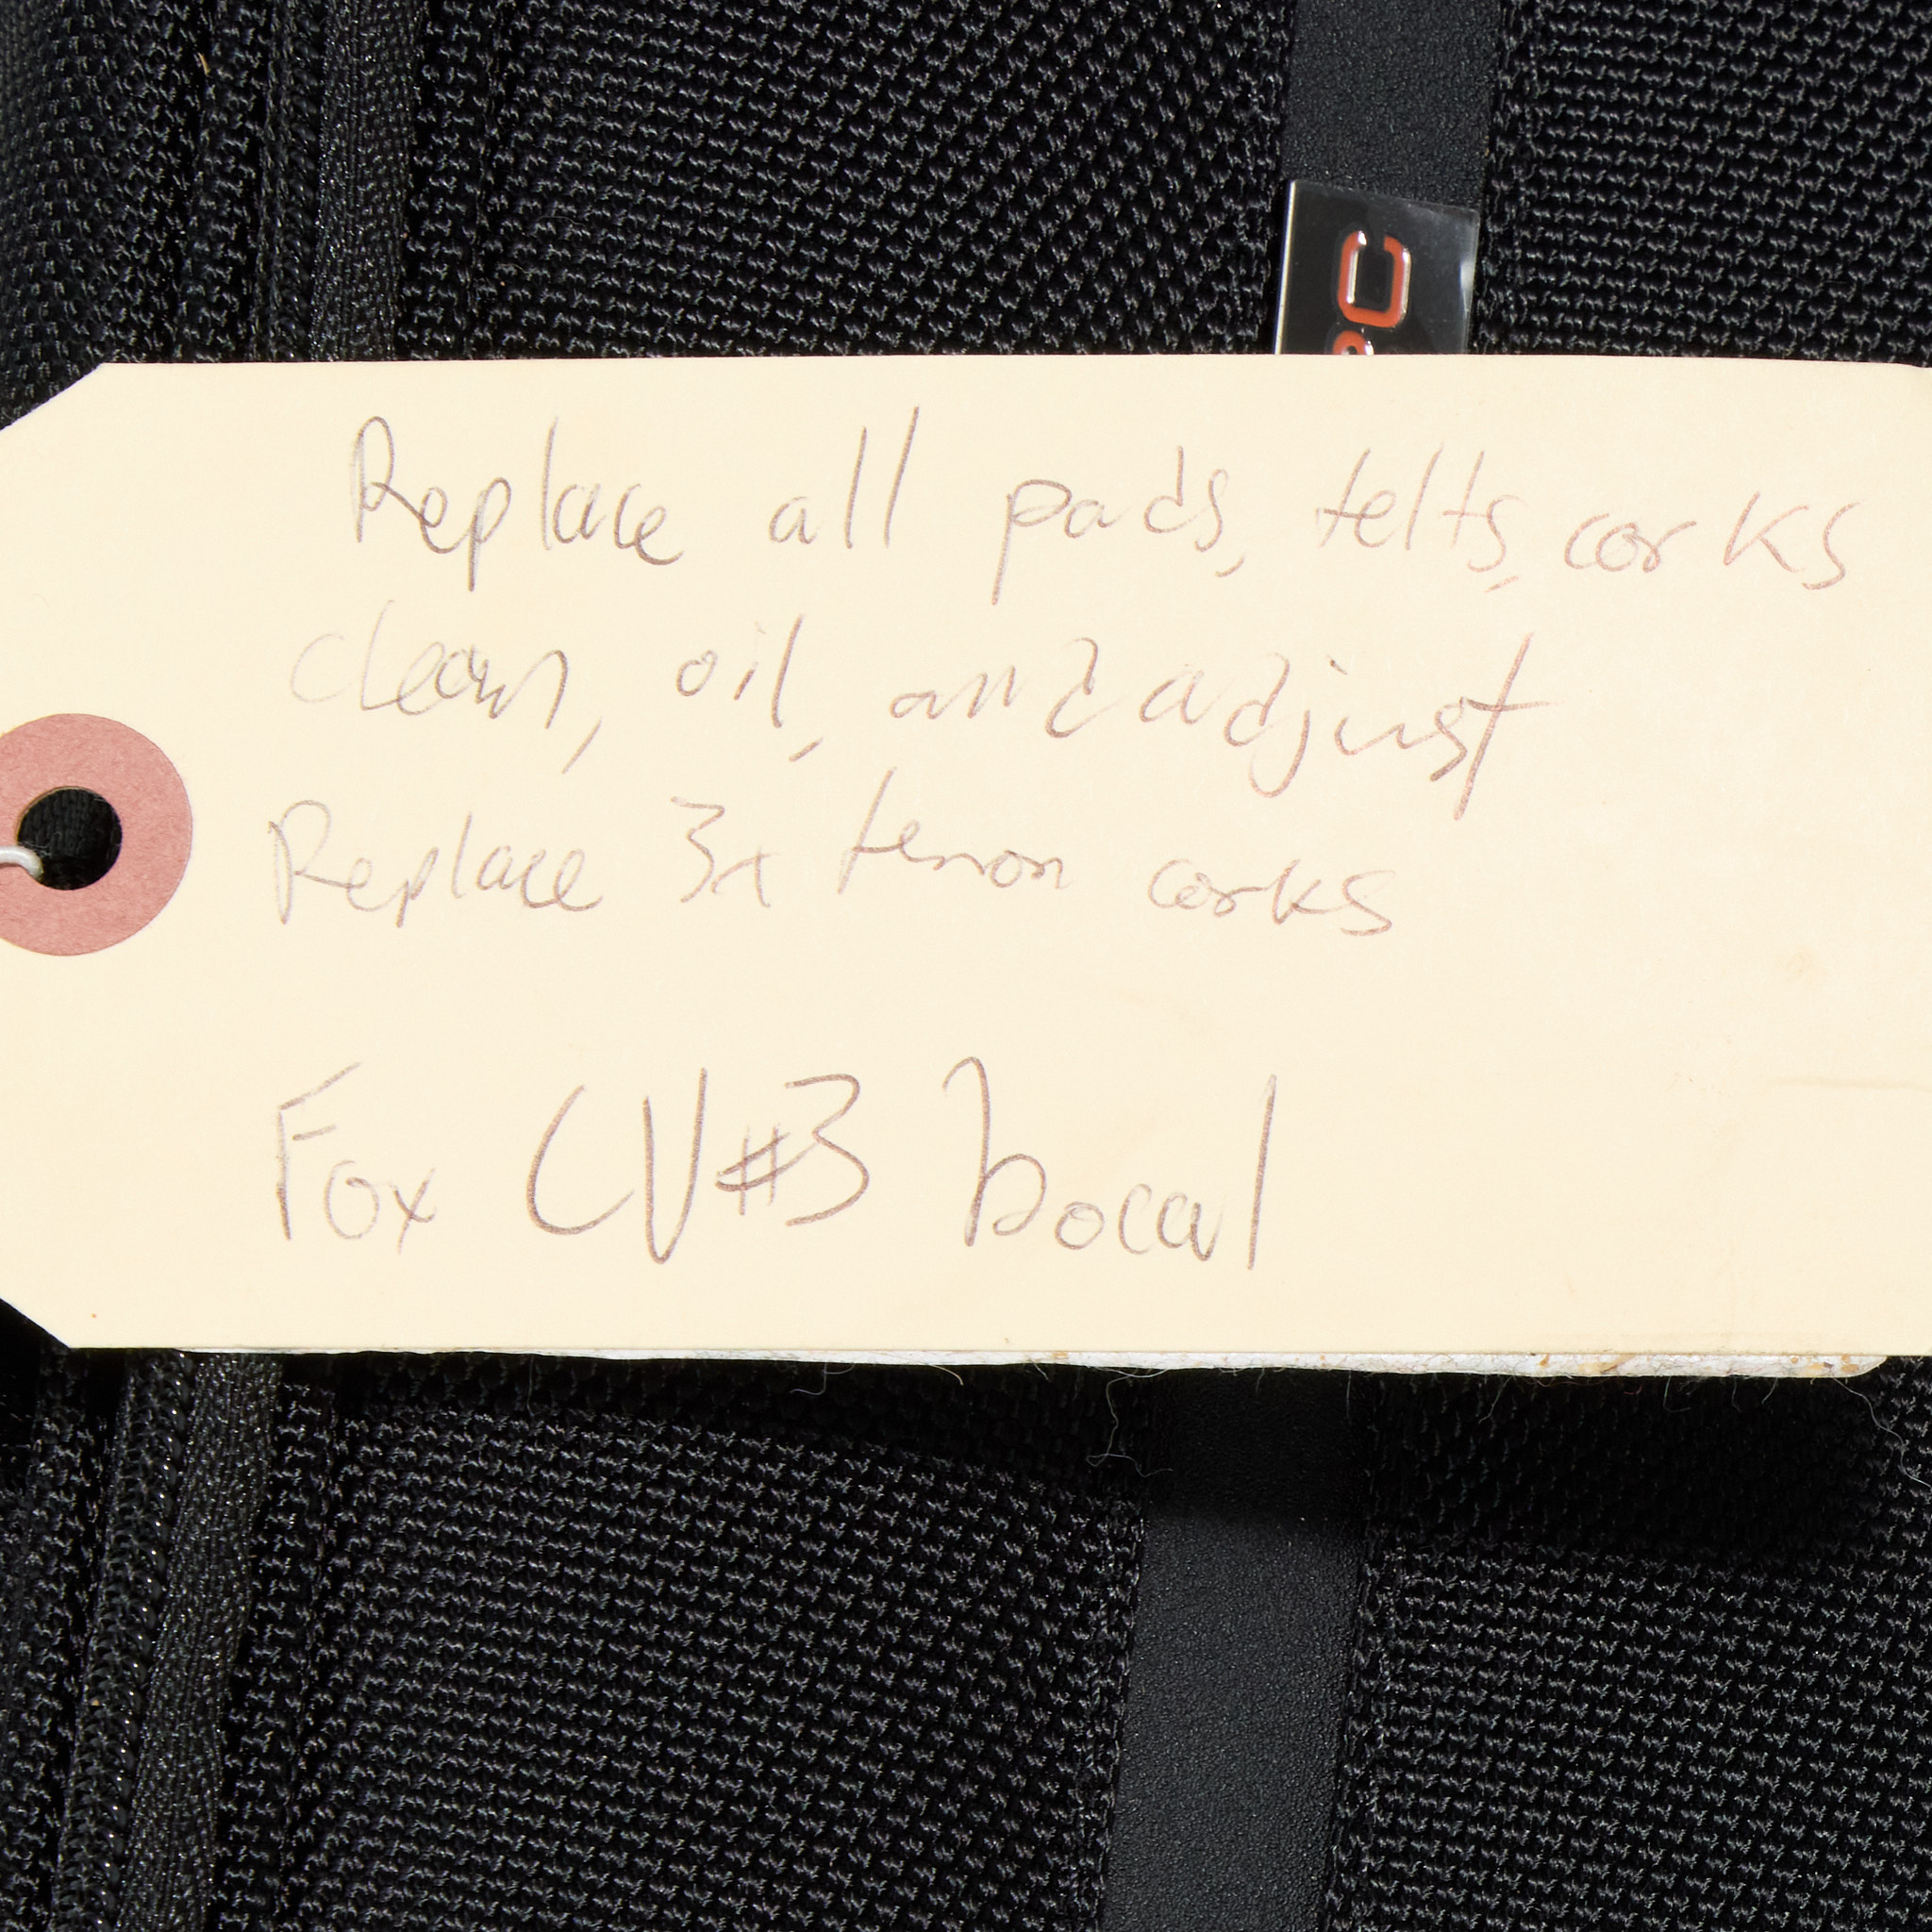 Replace all pads, felts, corks
clean, oil, and adjust
Replace 3x tenon corks
Fox CV#3 bocal